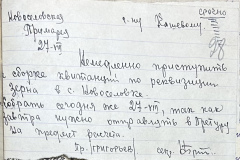 Новоселовская
Примария
27-VII
г-ну Вашевому.
срочно
Немедленно приступить
к сборке квитанций по реквизиции
зерна в с. Новоселовке.
Собрать сегодня же 27-VII, так как
завтра нужно отправлять в претуру
на предмет расчета.
Пр. /Григорьев/ сек.